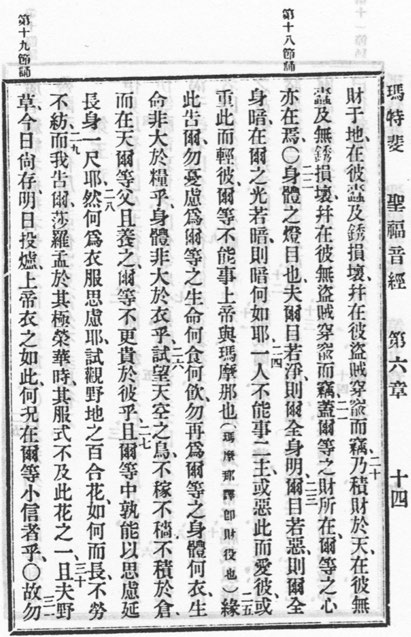 第十八節誦
第十九節誦
瑪特斐 聖福音經 第六章 十四
財于地、在彼蠹及銹損壞、幷在彼盜賊穿窬而竊、二十乃積財於天、在彼無
蠹及無銹損壞、幷在彼無盜賊穿窬而竊、二一蓋爾等之財所在、爾等之心
亦在焉、〇二二身體之燈目也、夫爾目若淨、則爾全身明、二三爾目若惡、則爾全
身暗、在爾之光若暗、則暗何如耶、二四一人不能事二主、或惡此而愛彼、或
重此而輕彼、爾等不能事上帝與瑪摩那也、(瑪摩那譯即財役也)二五緣
此告爾、勿憂慮爲爾等之生命何食何飲、勿再爲爾等之身體何衣、生
命非大於糧乎、身體非大於衣乎、二六試望天空之鳥、不稼不穡不積於倉、
而在天爾等父且養之、爾等不更貴於彼乎、二七且爾等中孰能以思慮延
長身一尺耶、二八然何爲衣服思慮耶、試觀野地之百合花、如何而長、不勞
不紡、二九而我告爾、莎羅孟於其極榮華時、其服式不及此花之一、三十且夫野
草、今日尚存、明日投爐、上帝衣之如此、何况在爾等小信者乎、〇三一故勿